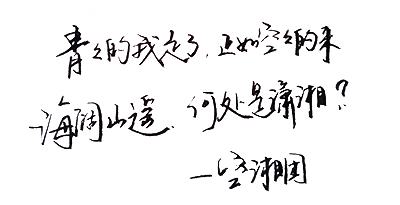 青々的我走了,正如空々的来
海阔山遥,何处是潇湘?
湘